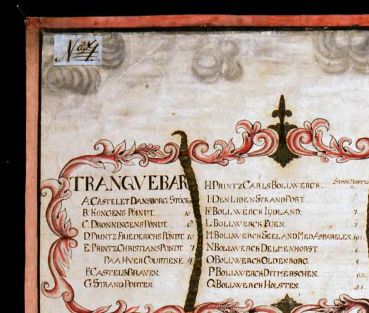 No 4
TRANQVEBAR
A CASTELET DANSBORG. STÜCK
B. KONGENS POINDT. 10
C. DRONNINGENS POINDT
D. PRINTZ FRIEDERICHS PÜNDT
E. PRINTZ CHRISTIANS POINDT 7
PAA HVER COURTIENE
F. CASTELS GRAVEN.
G. STRAND PORTEN.
H. PRINTZ CARLS BOLLWERCK.
I. DEN LIDEN STRAND PORT.
K. BOLLWERCK JUDLAND. 7
L. BOLLWERCK FUEN. 7
M. BOLLWERCK SEELAND MED APPARELES.
N. BOLLWERCK DELMENHORST. 6
O. BOLLWERCK OLDENBORG.
P. BOLLWERCK DITMERSCHEN.
Q. BOLLWERCK HOLSTEN.